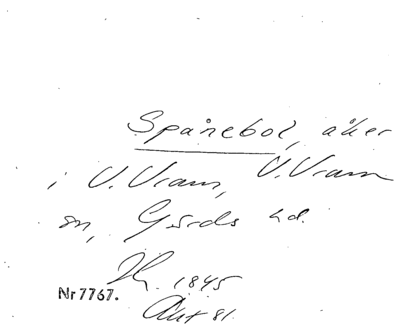 Spånebol, åker
i V. Vram, V. Vram
sn, Gärds hd.
1845
Nr 7767.
Akt 81.